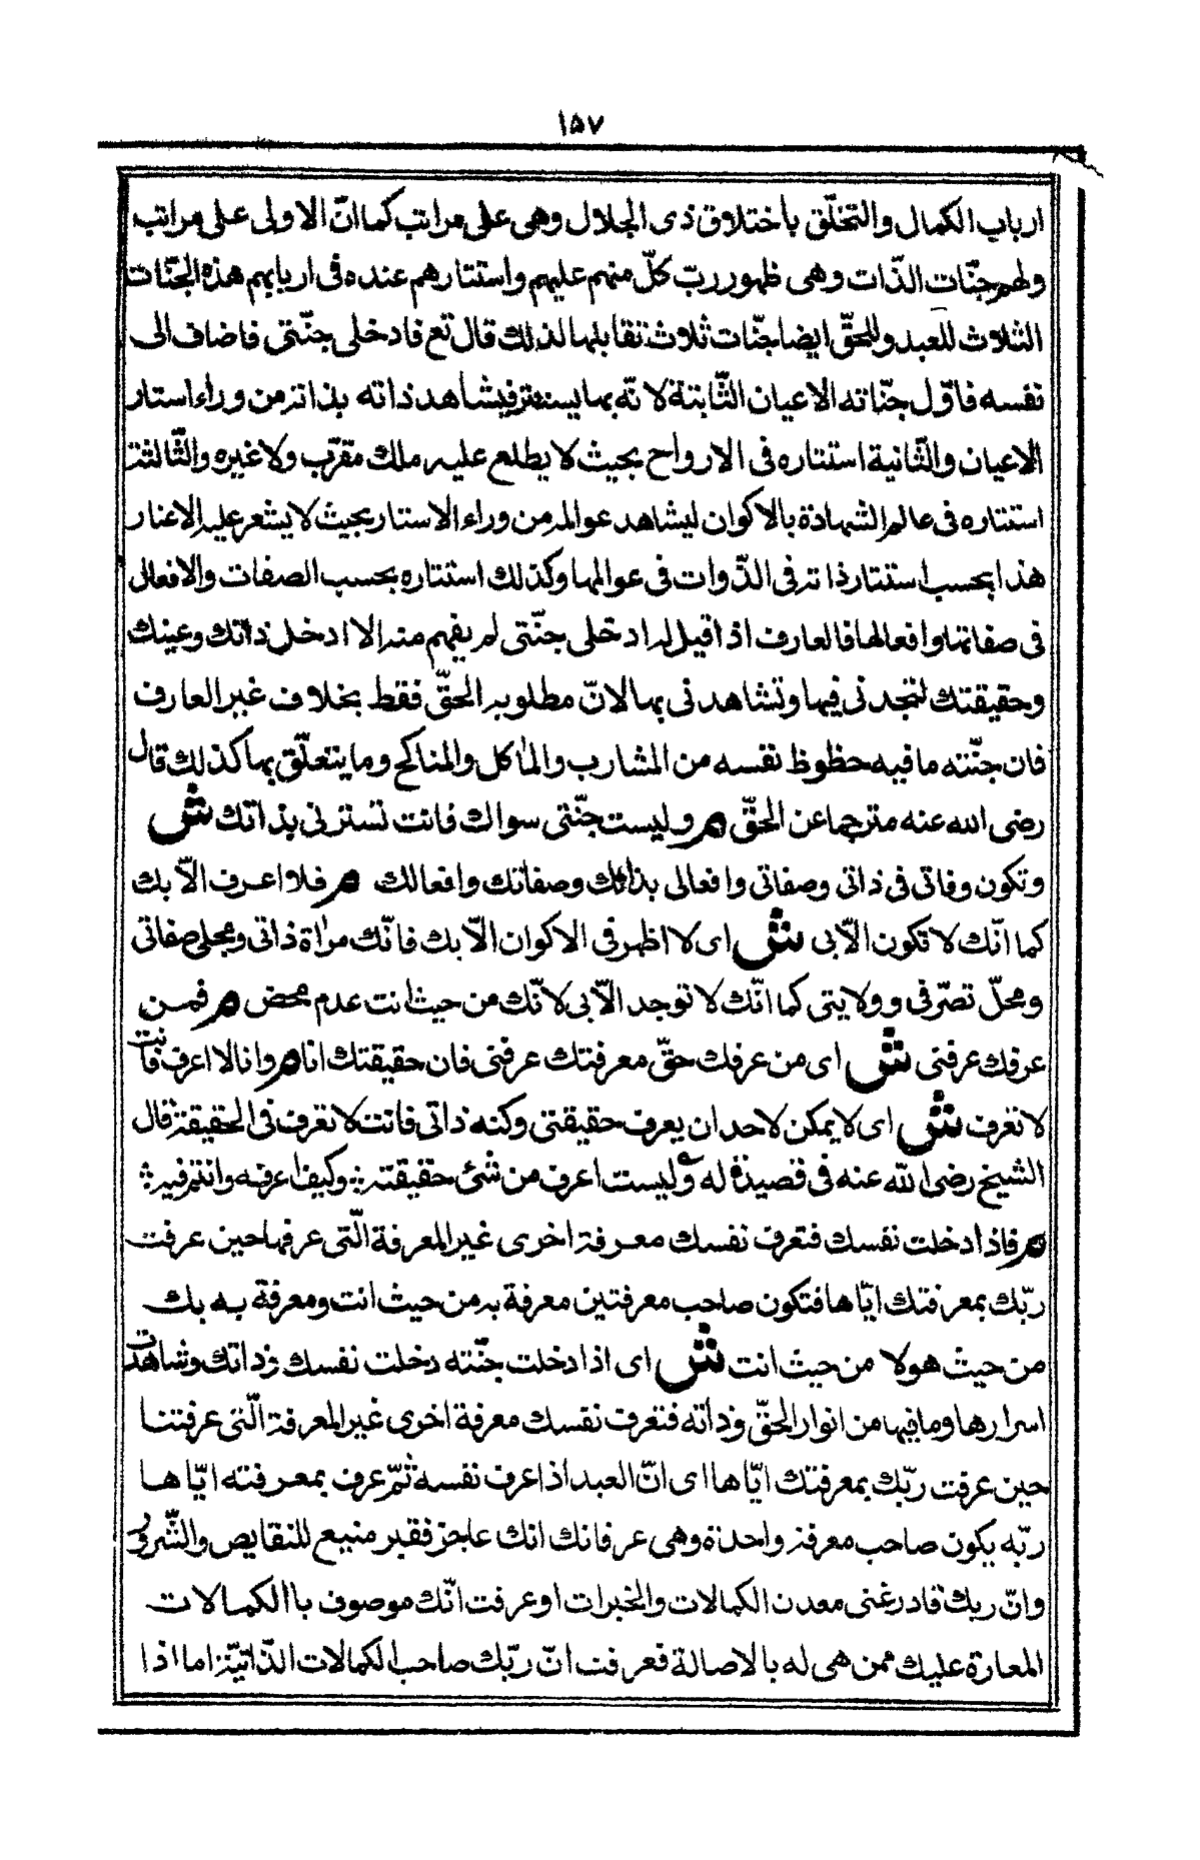 ١٥٧
ارباب الكمال والتخلّق باختلاق ذى الجلال وهى على مراتب كما انّ الاولى على مراتب
ولهم جنّات الذّات وهى ظهور ربّ كلّ منهم عليهم واستتارهم عنده فى اربابهم هذه الجنّات
الثلاث للعبد وللحقّ ايضا جنّات ثلاث تقابلها لذلك قال تع فادخلى جنّتى فاضاف الى
نفسه فاوّل جنّاته الاعيان الثّابتة لانّه بها يستتر فيشاهد ذاته بذاته من وراء استار
الاعيان والثّانية استتاره فى الارواح بحيث لا يطلع عليه ملك مقرّب ولا غيره والثّالثة
استتاره فى عالم الشهادة بالاكوان ليشاهد عوالمه من وراء الاستار بحيث لا يشعر عليه الاغيار
هذا بحسب استتار ذاته فى الذّوات فى عوالمها وكذلك استتاره بحسب الصفات والافعال
فى صفاتها وافعالها فالعارف اذا قيل له ادخلى جنّتى لم يفهم منه الا ادخل ذاتك وعينك
وحقيقتك لتجدنى فيها وتشاهدنى بها لانّ مطلوبه الحقّ فقط بخلاف غير العارف
فان جنّته ما فيه حظوظ نفسه من المشارب والمٰاكل والمناكح وما يتعلّق بها كذلك قال
رضى الله عنه مترجما عن الحقّ م وليست جنّتى سواك فانت تسترنى بذاتك ش
وتكون وقاتى فى ذاتى وصفاتى وافعالى بذاتك وصفاتك وافعالك م فلا اعرف الّا بك
كما انّك لا تكون الّا بى ش اى لا اظهر فى الاكوان الّا بك فانّك مراٰة ذاتى ومجلى صفاتى
ومحلّ تصرّفى وولايتى كما انّك لا توجد الّا بى لانّك من حيث انت عدم محض م فمن
عرفك عرفنى ش اى من عرفك حقّ معرفتك عرفنى فان حقيقتك انا م وانا لا اعرف فانت
لا تعرف ش اى لا يمكن لاحد ان يعرف حقيقتى وكنه ذاتى فانت لا تعرف فى الحقيقة قال
الشيخ رضى الله عنه فى قصيدة له وليست اعرف من شئ حقيقته ؞ وكيف اعرفه وانتم فيه ؞
م فاذا دخلت نفسك فتعرف نفسك معرفة اخرى غير المعرفة الّتى عرفها حين عرفت
ربّك بمعرفتك ايّاها فتكون صاحب معرفتين معرفة به من حيث انت ومعرفة به بك
من حيث هو لا من حيث انت ش اى اذا دخلت جنّته دخلت نفسك وذاتك وشاهدت
اسرارها وما فيها من انوار الحقّ وذاته فتعرف نفسك معرفة اخرى غير المعرفة الّتى عرفتنا
حين عرفت ربّك بمعرفتك ايّاها اى انّ العبد اذا عرف نفسه ثمّ عرف بمعرفته ايّاها
ربّه يكون صاحب معرفة واحدة وهى عرفانك انك عاجز فقير منبع للنقايص والشّرور
وانّ ربك قادر غنى معدن الكمالات والخيرات او عرفت انّك موصوف باالكمالات
المعارة عليك ممن هى له بالاصالة فعرفت انّ ربّك صاحب الكمالات الذّاتيّة اما اذا